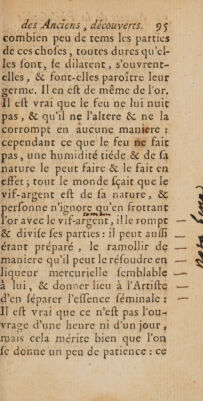 des Anciens, découverts. 95
combien peu de tems les parties
de ces choſes, toutes dures qu'el-
les ſont, ſe dilatent, s'ouvrent-
elles, & font-elles paroître leur
germe. Il en eſt de même de l'or.
Il eſt vrai que le feu ne lui nuit
pas, & qu'il ne l'altere & ne la
corrompt en aucune maniere :
cependant ce que le feu ne fait
pas, une humidité tiéde & de ſa
nature le peut faire & le fait en
effet ; tout le monde ſçait que le
vif-argent eſt de ſa nature, &
perſonne n'ignore qu'en frottant
l'or avec le vif-argent, il le rompt
& diviſe ſes parties : il peut auſſi
étant préparé, le ramollir de
maniere qu'il peut le réſoudre en
liqueur mercurielle ſemblable
à lui, & donner lieu à l'Artiſte
d'en ſéparer l'eſſence ſéminale :
Il eſt vrai que ce n'eſt pas l'ou-
vrage d'une heure ni d'un jour,
mais cela mérite bien que l'on
ſe donne un peu de patience : ce